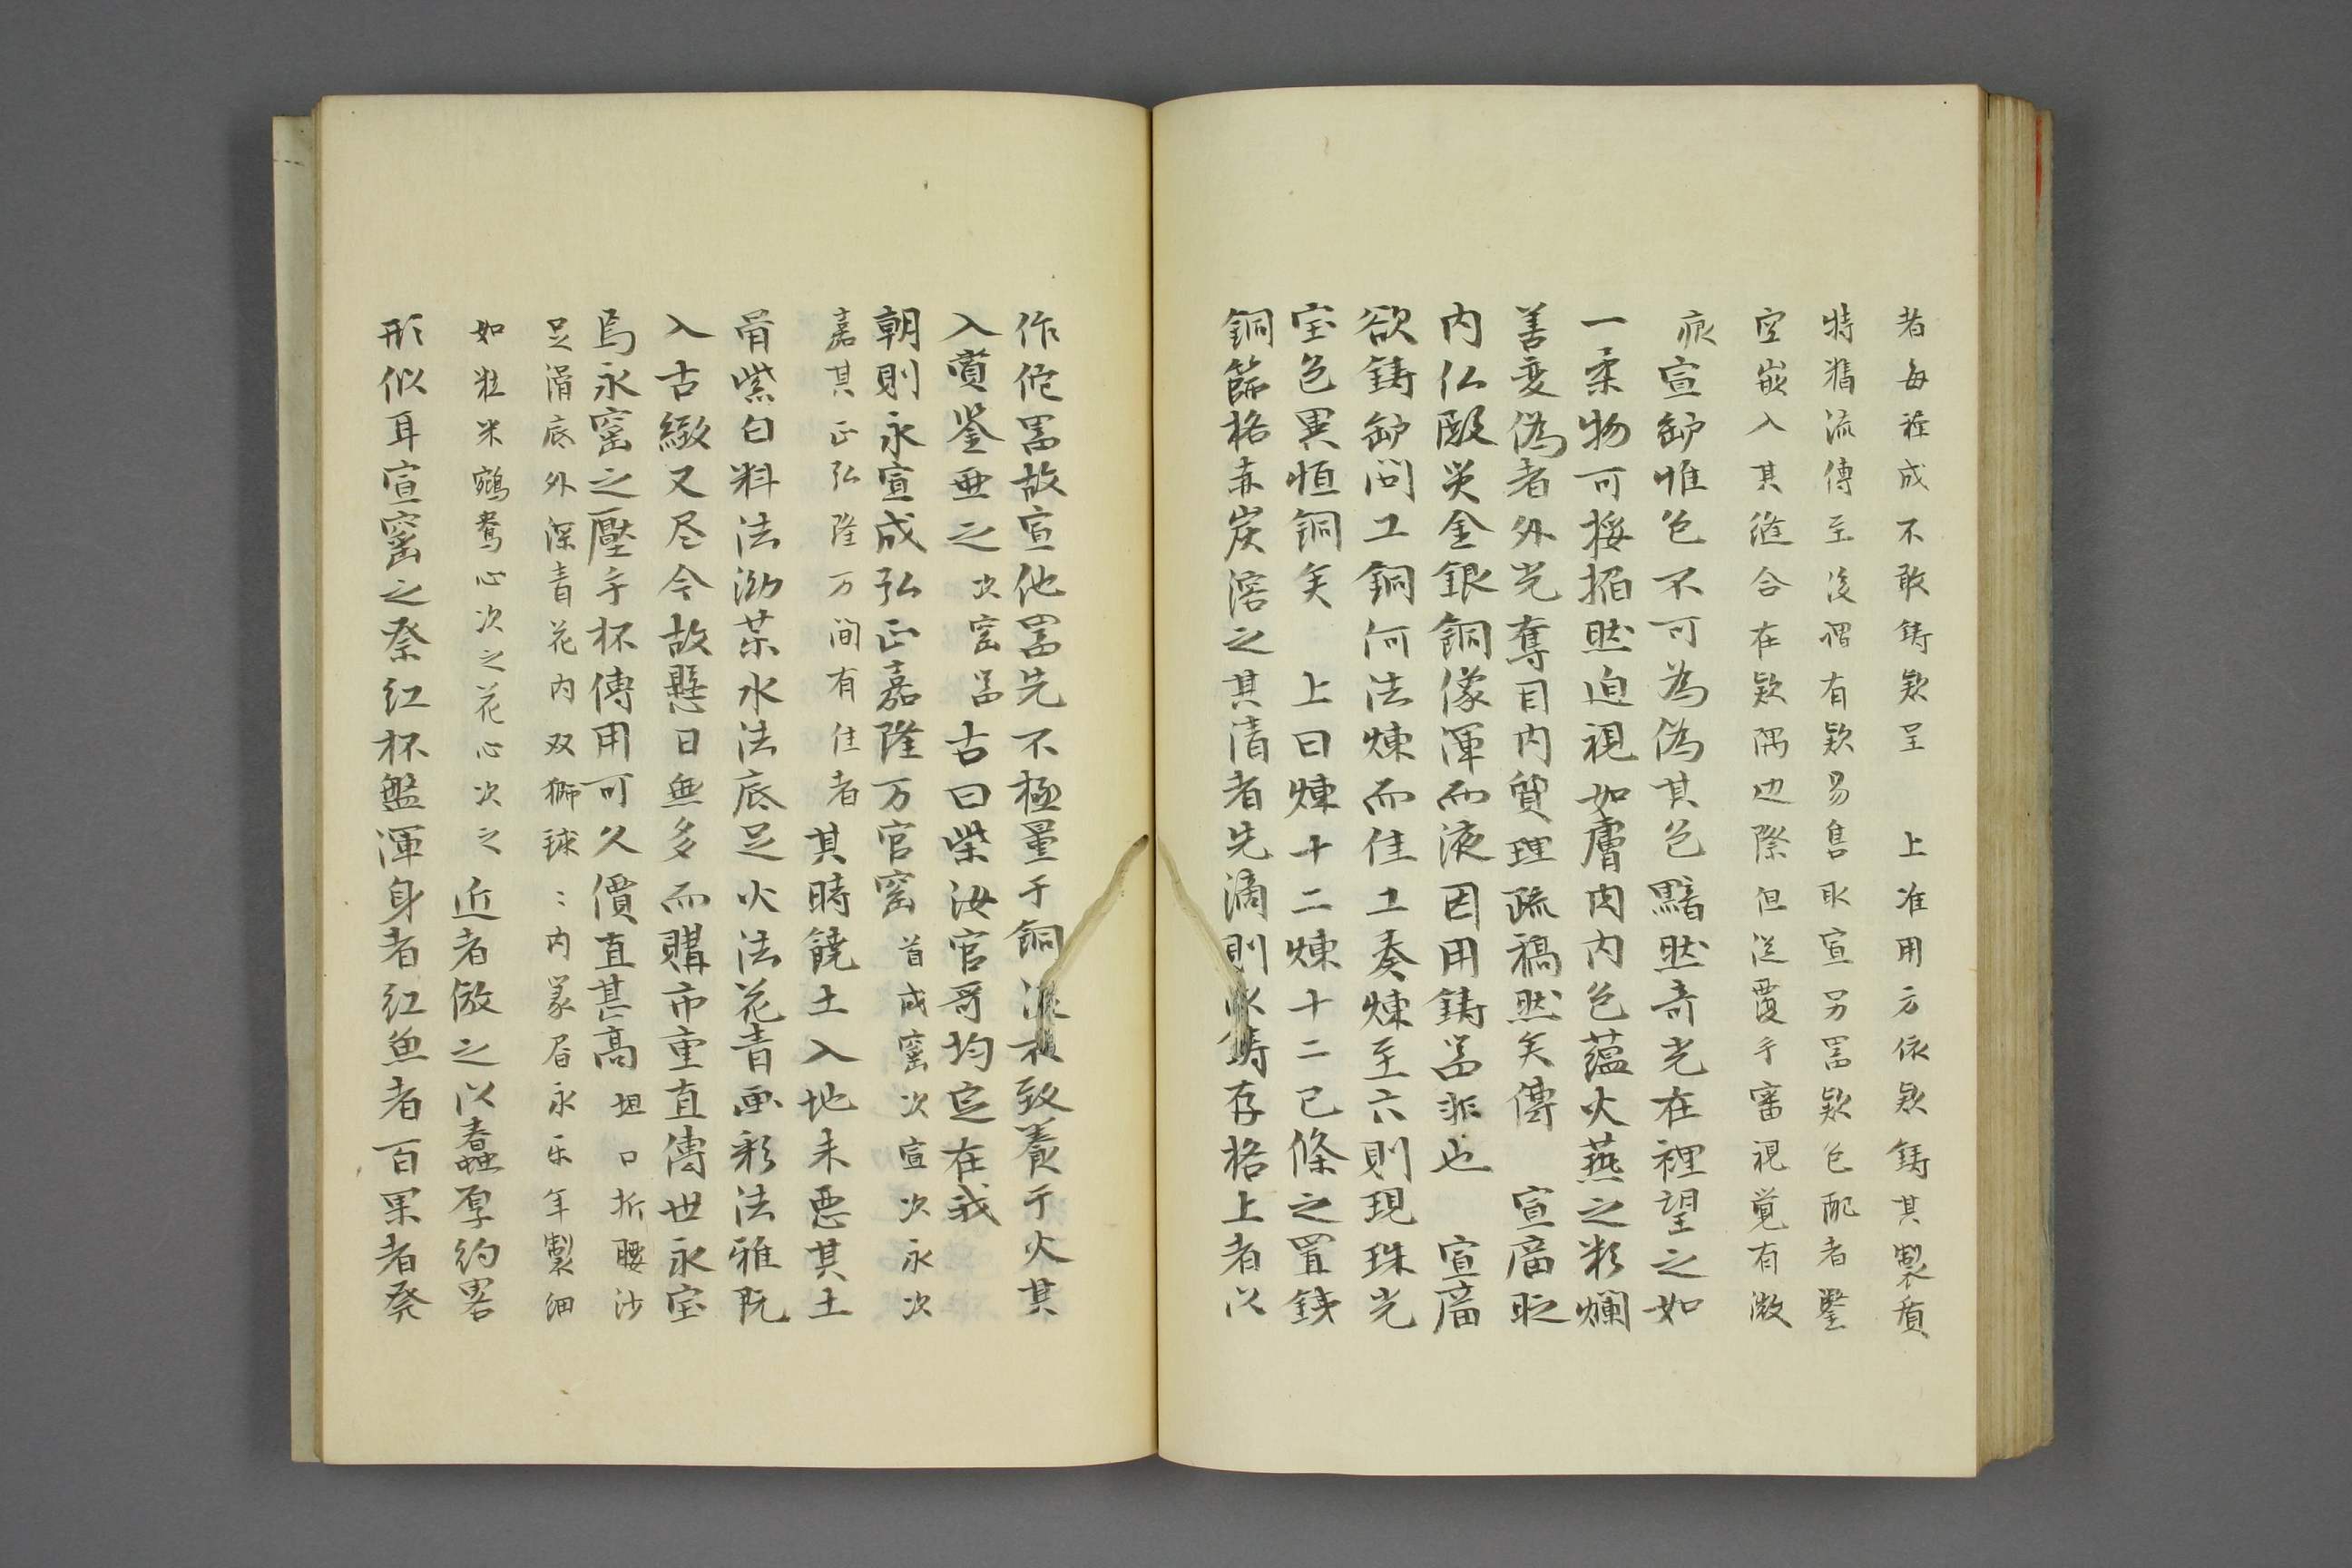 者每種成不敢鋳欵呈　上准用方依欵鋳其製質
特精流傳至後擂有欵易售取宣另噐欵色配者鑿
空嵌入其縫合在欵隅边際但従覆手審視覚有㣲
痕宣𬬻惟色不可為偽其色黯然奇光在裡望之如
一柔物可挼掐然迫視如膚肉内色蘊火𤑔之彩爛
善変偽者外光奪目内質理疏槁然矣傳　宣廟时
内仏殿災金銀銅像渾而液因用鋳噐非也　宣廟
欲鋳𬬻问工銅何法煉而佳工奏煉至六則現珠光
宝色異恒銅矣　上曰煉十二煉十二已條之置鉄
銅篩格赤炭溶之其清者先滴則以鋳存格上者以
作他噐故宣他噐先不極量于銅次不致養于火其
入賞鉴亜之次窑噐古曰柴汝官哥均定在我
朝則永宣成弘正嘉隆万官窑首成窑次宣次永次
嘉其正弘隆万间有佳者其時饒土入地未悪其土
骨紫白料法泑菜水法底足火法花青画彩法雅既
入古緻又尽今故懸日無多而購市重直傳世永宝
焉永窑之壓手杯傳用可久價直甚高坦口折腰沙
足滑底外深青花内双獅球〻内篆眉永乐年製細
如粒米鴛鴦心次之花心次之近者倣之以蠢厚約畧
形似耳宣窑之祭红杯盤渾身者红魚者百果者発